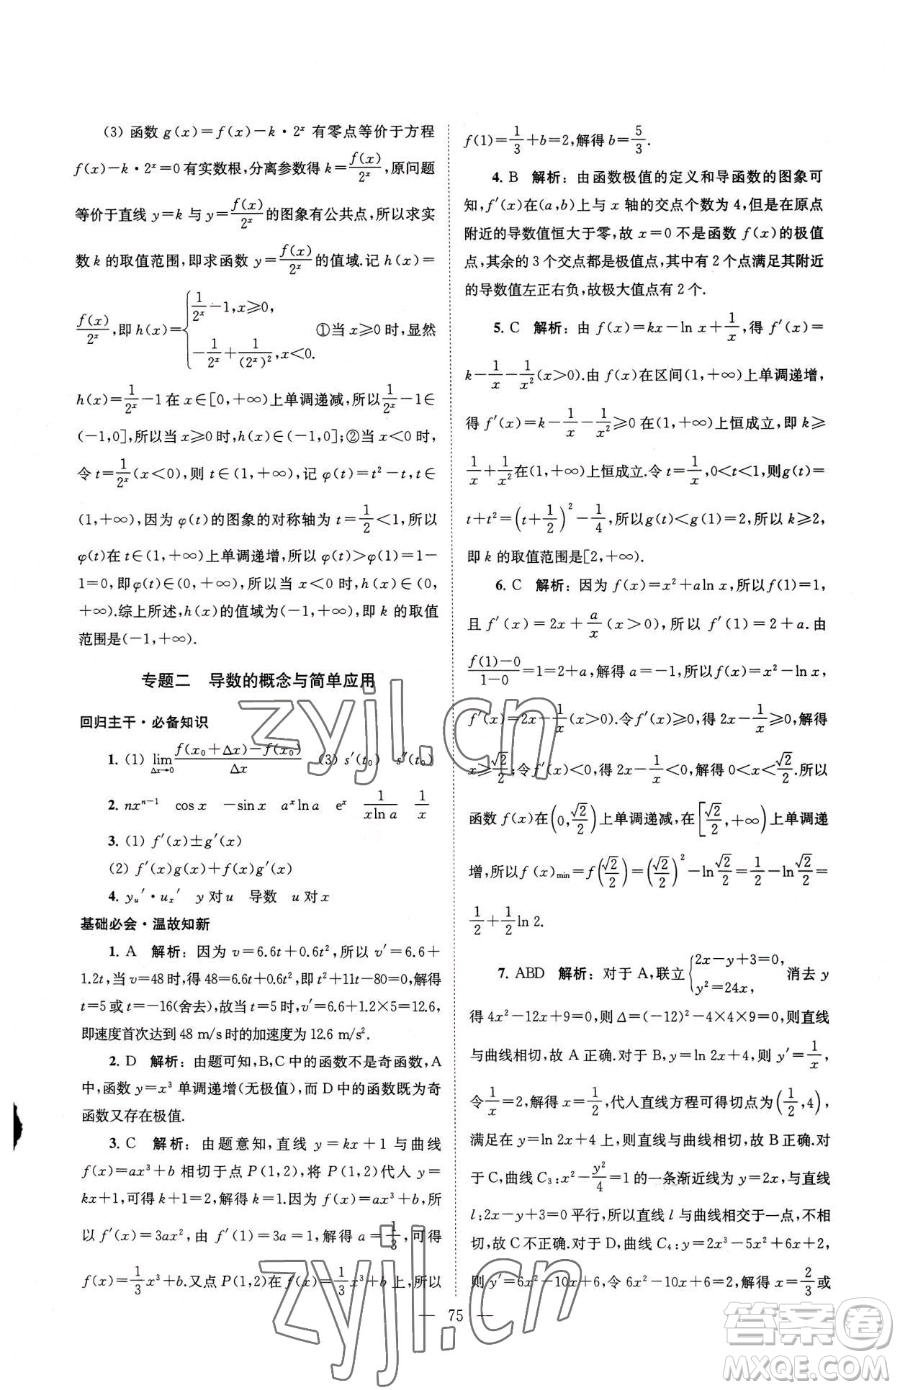 (3) 函数 g(x)=f(x)-k·2ˣ 有零点等价于方程
f(x)-k·2ˣ=0 有实数根,分离参数得 k=f(x)/2ˣ,原问题
等价于直线 y=k 与 y=f(x)/2ˣ 的图象有公共点,所以求实
数 k 的取值范围,即求函数 y=f(x)/2ˣ 的值域.记 h(x)=
f(x)/2ˣ,即 h(x)={1/2ˣ-1,x≥0, -1/2ˣ+1/(2ˣ)²,x<0. ①当 x≥0 时,显然
h(x)=1/2ˣ-1 在 x∈[0,+∞)上单调递减,所以1/2ˣ-1∈
(-1,0],所以当 x≥0 时,h(x)∈(-1,0];②当 x<0 时,
令 t=1/2ˣ(x<0),则 t∈(1,+∞),记 φ(t)=t²-t,t∈
(1,+∞),因为 φ(t)的图象的对称轴为 t=1/2<1,所以
φ(t)在 t∈(1,+∞)上单调递增,所以 φ(t)>φ(1)=1-
1=0,即 φ(t)∈(0,+∞),所以当 x<0 时,h(x)∈(0,
+∞).综上所述,h(x)的值域为(-1,+∞),即 k 的取值
范围是(-1,+∞).
专题二 导数的概念与简单应用
回归主干·必备知识
1. (1) lim Δx→0 f(x₀+Δx)-f(x₀)/Δx (3) s′(t₀) s″(t₀)
2. nxⁿ⁻¹ cos x -sin x aˣln a eˣ 1/xln a 1/x
3. (1) f′(x)±g′(x)
(2) f′(x)g(x)+f(x)g′(x)
4. yᵤ′·uₓ′ y 对 u 导数 u 对 x
基础必会·温故知新
1. A 解析:因为 v=6.6t+0.6t²,所以 v′=6.6+
1.2t,当 v=48 时,得 48=6.6t+0.6t²,即 t²+11t-80=0,解得
t=5 或 t=-16(舍去),故当 t=5 时,v′=6.6+1.2×5=12.6,
即速度首次达到 48 m/s 时的加速度为 12.6 m/s².
2. D 解析:由题可知,B,C 中的函数不是奇函数,A
中,函数 y=x³ 单调递增(无极值),而 D 中的函数既为奇
函数又存在极值.
3. C 解析:由题意知,直线 y=kx+1 与曲线
f(x)=ax³+b 相切于点 P(1,2),将 P(1,2)代入 y=
kx+1,可得 k+1=2,解得 k=1.因为 f(x)=ax³+b,所
以 f′(x)=3ax²,由 f′(1)=3a=1,解得 a=1/3,可得
f(x)=1/3x³+b.又点 P(1,2)在 f(x)=1/3x³+b 上,所以
f(1)=1/3+b=2,解得 b=5/3.
4. B 解析:由函数极值的定义和导函数的图象可
知,f′(x)在(a,b)上与 x 轴的交点个数为 4,但是在原点
附近的导数值恒大于零,故 x=0 不是函数 f(x)的极值
点,其余的 3 个交点都是极值点,其中有 2 个点满足其附近
的导数值左正右负,故极大值点有 2 个.
5. C 解析:由 f(x)=kx-ln x+1/x,得 f′(x)=
k-1/x-1/x²(x>0).由 f(x)在区间[1,+∞)上单调递增,
得 f′(x)=k-1/x-1/x²≥0 在[1,+∞)上恒成立,即 k≥
1/x+1/x²在[1,+∞)上恒成立.令 t=1/x,0<t<1,则 g(t)=
t+t²=(t+1/2)²-1/4,所以 g(t)<g(1)=2,所以 k≥2,
即 k 的取值范围是[2,+∞).
6. C 解析:因为 f(x)=x²+aln x,所以 f(1)=1,
且 f′(x)=2x+a/x(x>0),所以 f′(1)=2+a.由
f(1)-0/1-0=1=2+a,得 a=-1,所以 f(x)=x²-ln x,
f′(x)=2x-1/x(x>0).令 f′(x)≥0,得 2x-1/x≥0,解得
x≥√2/2;令 f′(x)<0,得 2x-1/x<0,解得 0<x<√2/2.所以
函数 f(x)在(0,√2/2)上单调递减,在[√2/2,+∞)上单调递
增,所以 f(x)min=f(√2/2)=(√2/2)²-ln√2/2=1/2-ln√2/2=
1/2+1/2ln 2.
7. ABD 解析:对于 A,联立{2x-y+3=0, y²=24x, 消去 y
得 4x²-12x+9=0,所以 Δ=(-12)²-4×4×9=0,所以直线
与曲线相切,故 A 正确.对于 B,由 y=ln 2x+4,则 y′=1/x,
令1/x=2,解得 x=1/2,代入直线方程可得切点为(1/2,4),
满足在 y=ln 2x+4 上,所以直线与曲线相切,故 B 正确.对
于 C,曲线 C₃:x²-y²/4=1 的一条渐近线为 y=2x,与直线
l:2x-y+3=0 平行,所以直线 l 与曲线相交于一点,不相
切,故 C 不正确.对于 D,由曲线 C₄:y=2x³-5x²+6x+6,
则 y′=6x²-10x+6,令 6x²-10x+6=2,解得 x=2/3或
— 75 —
zyjl.cn
zyjl.cn
答案圈
MXQE.COM